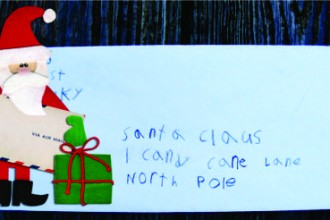 st
KY
VIA AIR MAIL
santa claus
1 candy cane Lane
North Pole